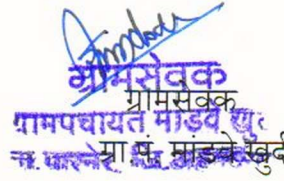 ग्रामसेवक
ग्रामसेवक
ग्रामपंचायत मांडवे खु
ग्रा.पं. मांडवे खुर्द
ता. पारनेर